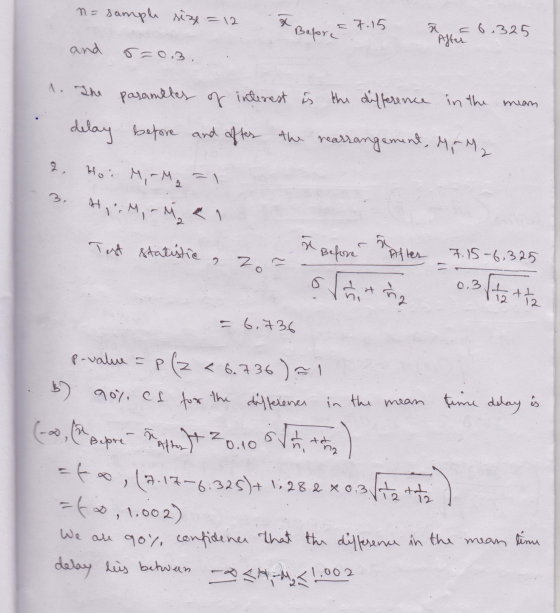 n = sample size = 12 x̄ Before = 7.15 x̄ After = 6.325
and σ = 0.3.
1. The parameter of interest is the difference in the mean
delay before and after the rearrangement, M₁-M₂
2. H₀: M₁-M₂ = 1
3. H₁: M₁-M₂ < 1
Test statistic, Z₀ = (x̄ Before - x̄ After) / (σ √(1/n₁ + 1/n₂)) = (7.15-6.325) / (0.3 √(1/12 + 1/12))
= 6.736
P-value = P(Z < 6.736) ≈ 1
b) 90% CI for the difference in the mean time delay is
(-∞, (x̄ Before - x̄ After) + Z 0.10 σ √(1/n₁ + 1/n₂))
= (-∞, (7.17-6.325) + 1.282 × 0.3 √(1/12 + 1/12))
= (-∞, 1.002)
We are 90% confidence that the difference in the mean time
delay lies between -∞ ≤ M₁-M₂ ≤ 1.002